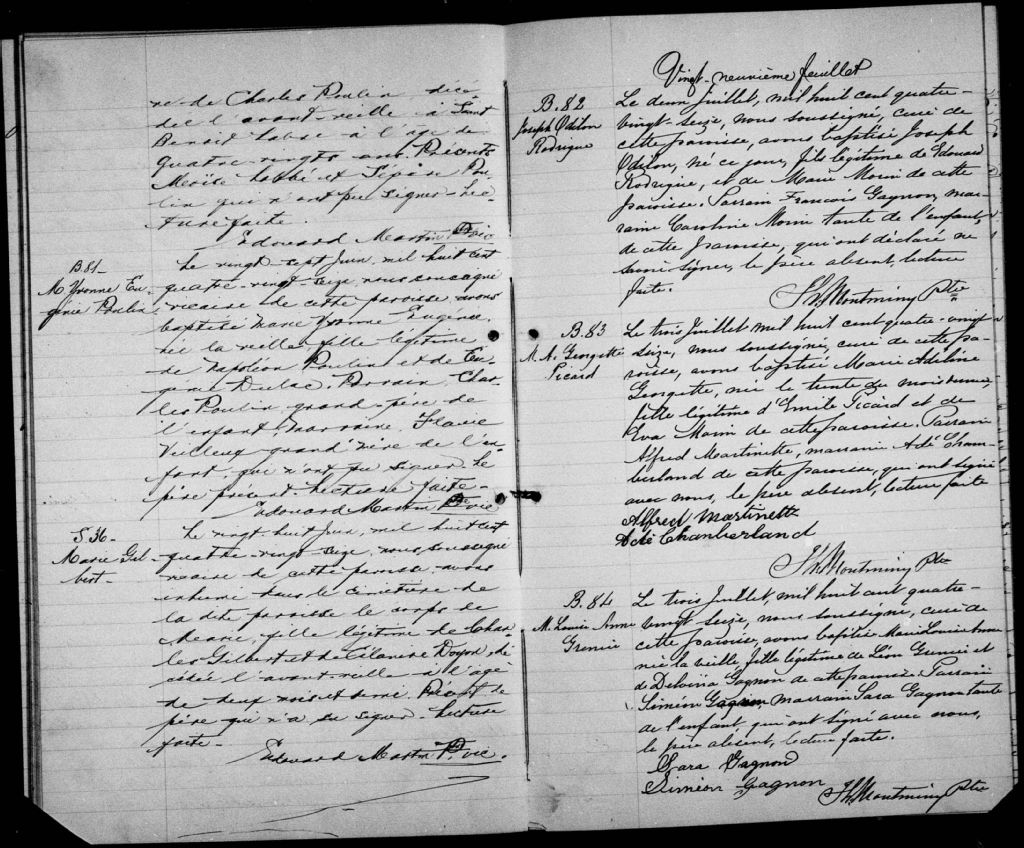 ne de Charles Poulin, décé-
dé l'avant-veille à Saint
Benoit Labre à l'âge de
quatre-vingts ans. Présents
Moïse Labbé et Poulin
qui n'ont pu signer. Lec-
ture faite.
Edouard Martin Ptre Vic
B. 81-
M. Yvonne Eu-
génie Poulin
Le vingt-sept Juin, mil huit cent
quatre-vingt-seize, nous soussigné
vicaire de cette paroisse avons
baptisé Marie Yvonne Eugénie,
née la veille, fille légitime
de Napoléon Poulin et de Eu-
génie Dulac. Parrain, Char-
les Poulin grand-père de
l'enfant, marraine Flavie
Veilleux grand'mère de l'en-
fant qui n'ont pu signer. Le
père présent. Lecture faite-
Edouard Martin Ptre Vic
S 36-
Marie Gil-
bert-
Le vingt huit Juin, mil huit cent
quatre-vingt-seize, nous soussigné
vicaire de cette paroisse avons
inhumé dans le cimetière de
la dite paroisse le corps de
Marie, fille légitime de Char-
les Gilbert et de Doyon, dé-
cédée l'avant-veille à l'âge
de neuf mois et demi. Présent le
père qui n'a su signer. Lecture
faite-
Edouard Martin Ptre vic.
Vingt-neuvième feuillet
B. 82
Joseph Odilon
Rodrigue
Le deux Juillet, mil huit cent quatre-
vingt seize, nous soussigné, curé de
cette paroisse, avons baptisé Joseph
Odilon, né ce jour, fils légitime de Edouard
Rodrigue, et de Marie Morin de cette
paroisse. Parrain François Gagnon, mar-
raine Caroline Morin tante de l'enfant,
de cette paroisse, qui ont déclaré ne
savoir signer, le père absent, lecture
faite.
Th. Montminy Ptre
B. 83
M. A. Georgette
Picard
Le trois Juillet mil huit cent quatre-vingt
seize, nous soussigné, curé de cette pa-
roisse, avons baptisé Marie Adeline
Georgette, née le trente du mois dernier,
fille légitime d'Emile Picard et de
Eva Morin de cette paroisse. Parrain
Alfred Martinette, marraine Adé Cham-
berland de cette paroisse, qui ont signé
avec nous, le père absent, lecture faite
Alfred Martinette
Adé Chanberland
Th. Montminy Ptre
B. 84
M. Louise Anne
Grenier
Le trois Juillet, mil huit cent quatre-
vingt seize, nous soussigné, curé de
cette paroisse, avons baptisé Marie Louise Anne
née la veille, fille légitime de Léon Grenier et
de Delvina Gagnon de cette paroisse. Parrain
Siméon Gagnon marraine Sara Gagnon tante
de l'enfant qui ont signé avec nous,
le père absent, lecture faite.
Sara Gagnon
Siméon Gagnon
Th. Montminy Ptre